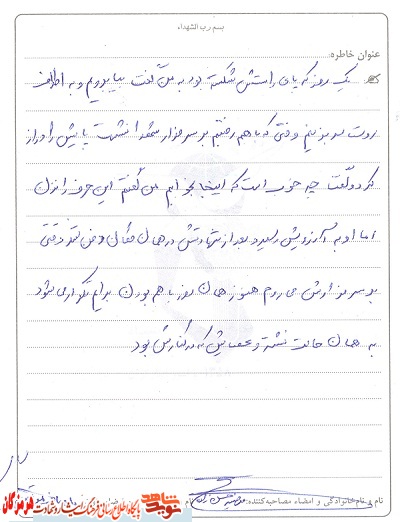 بسم رب الشهداء
عنوان خاطره:
یک روز که پای راستش شکسته بود به من گفت بیا برویم و به اطراف
روستا سر بزنیم وقتی که با هم رفتیم بر سر مزار شهدا نشست پایش را دراز
کرد و گفت چه خوب است که اینجا بخوابم من گفتم این حرف را نزن
اما او به آرزویش رسید بعد از شهادتش در همان مکان دفن شد وقتی
بر سر مزارش می روم هنوز همان روز با هم بودن برایم تکرار می شود
به همان حالت نشسته و عصایش که در کنارش بود
نام و نام خانوادگی و امضاء مصاحبه کننده:
شاهد
نوید
پایگاه اطلاع رسانی فرهنگ ایثار و شهادت هرمزگان